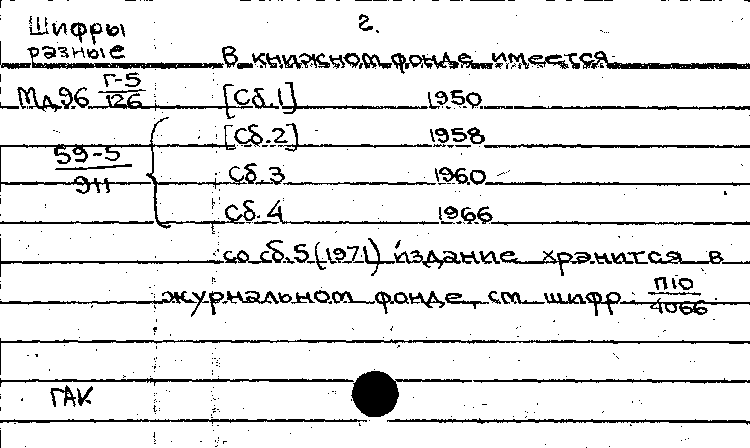 2.
Шифры
разные
В книжном фонде имеется
Мд96 Г-5/126 [Сб.1] 1950
[Сб.2] 1958
59-5/911
Сб.3 1960
Сб.4 1966
со сб.5 (1971) издание хранится в
журнальном фонде, см шифр П10/4066
ГАК